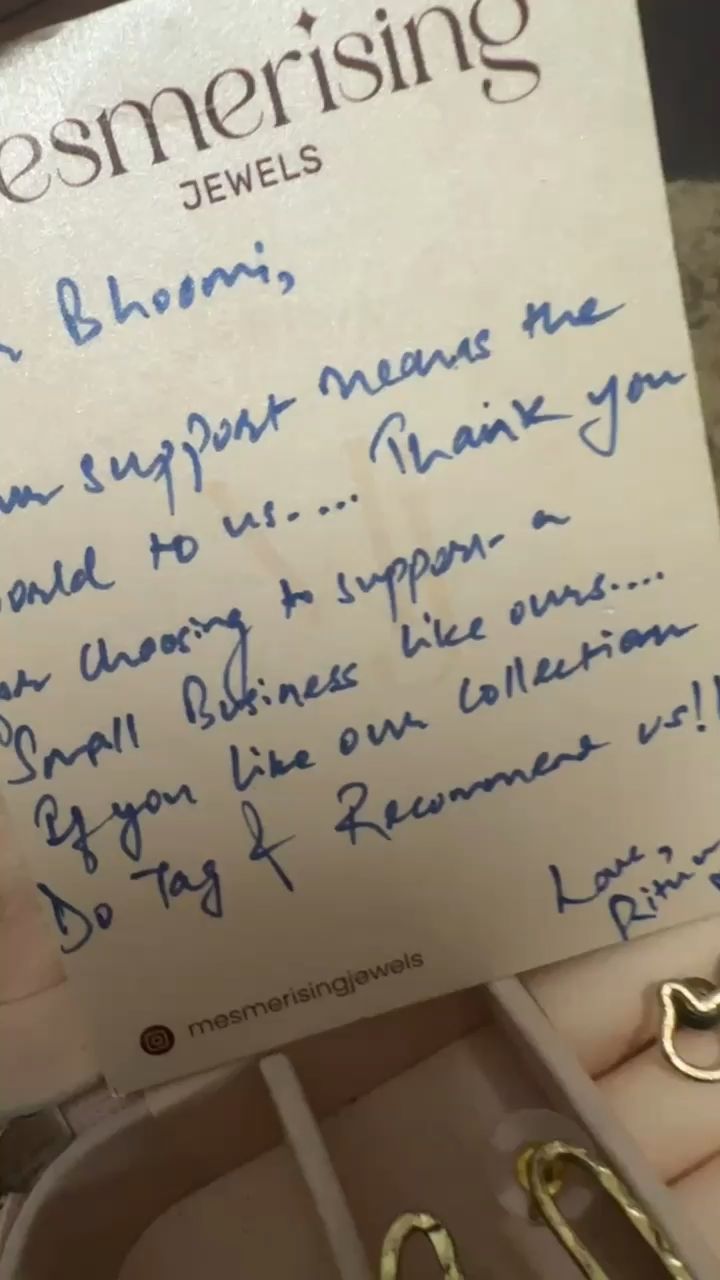 esmerising
JEWELS
Bhoomi,
support means the
orld to us.... Thank you
choosing to support a
Small Business like ours....
If you like our collection
Do Tag & Recomment us!!
Love,
Ritu
mesmerisingjewels